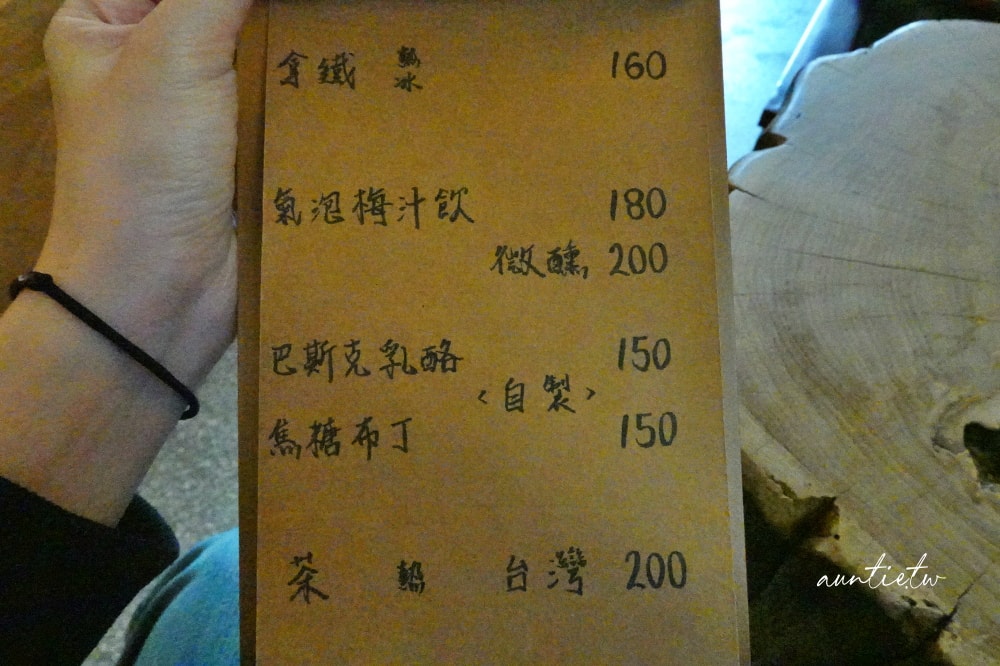 拿鐵 熱 冰 160
氣泡梅汁飲 180
微醺 200
巴斯克乳酪 150
<自製>
焦糖布丁 150
茶 熱 台灣 200
auntie.tw